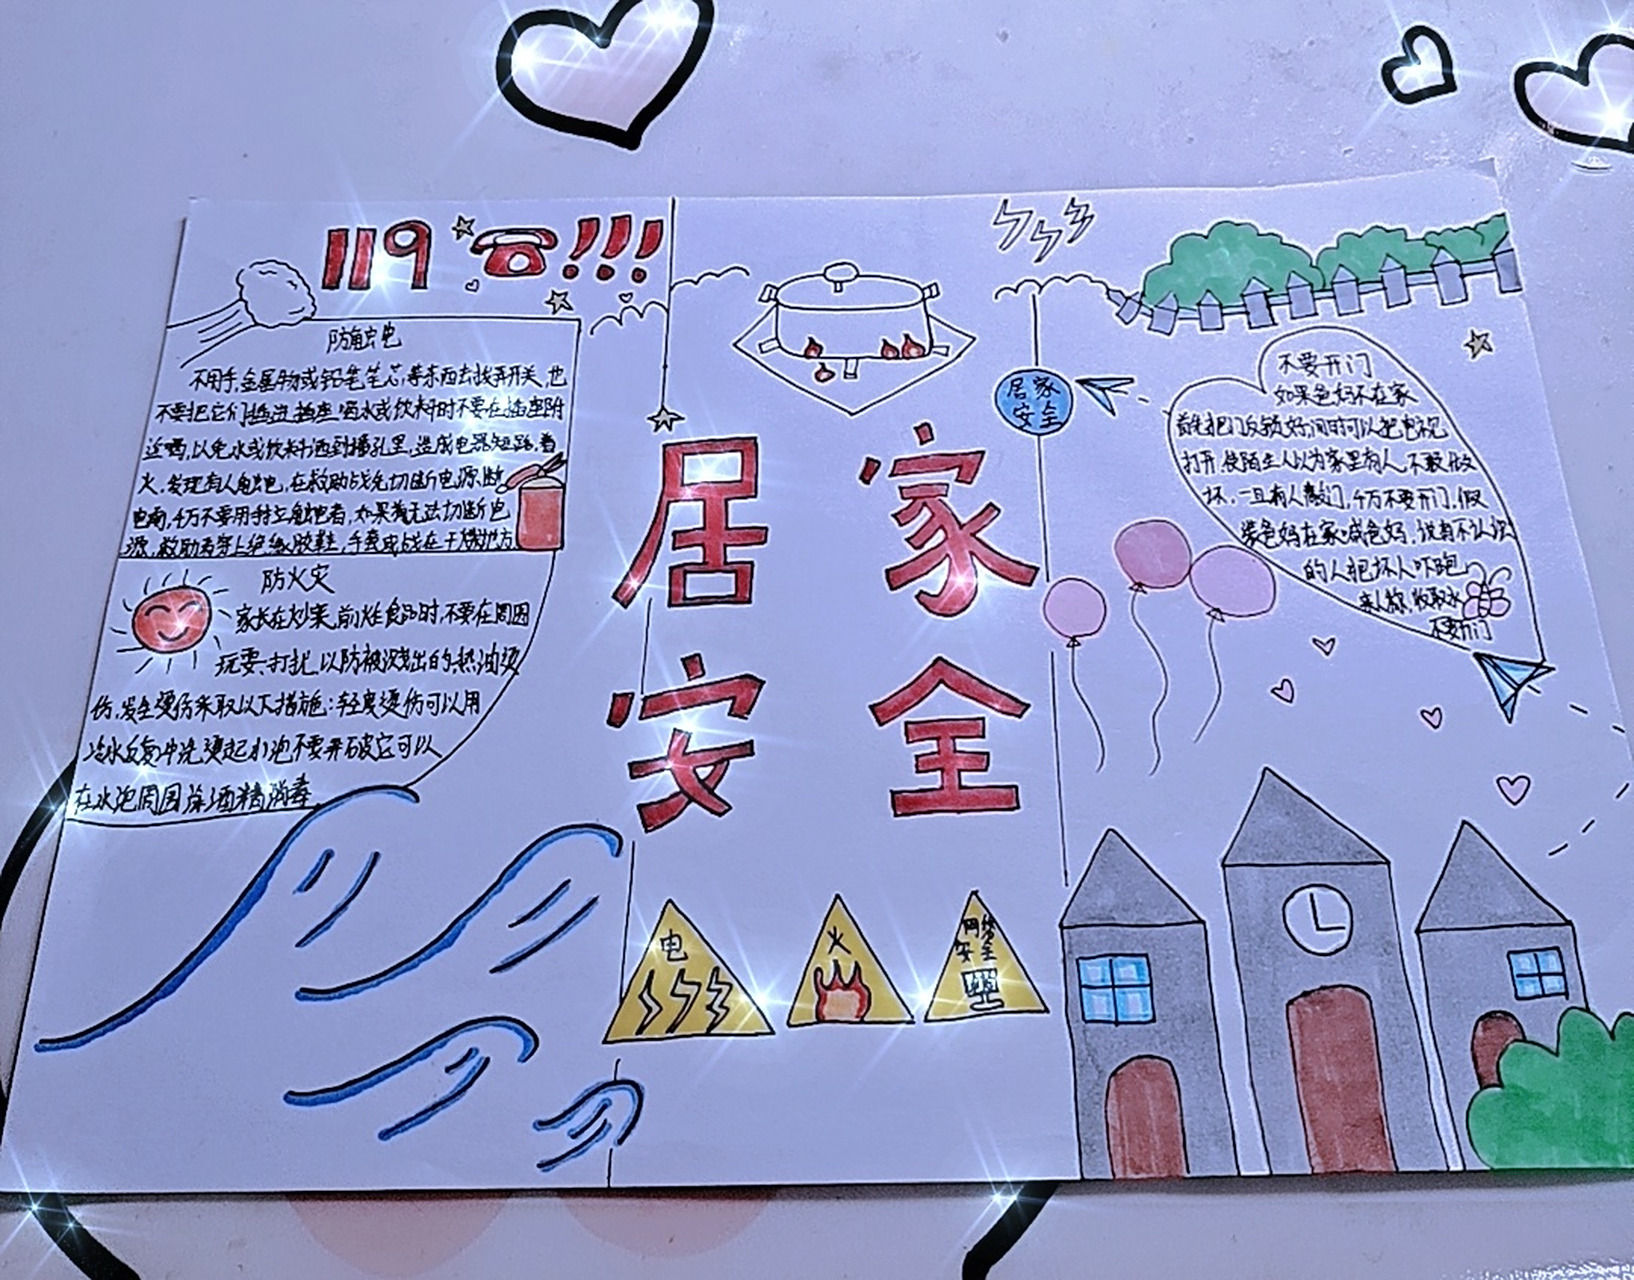 119 ☎!!!
防触电
不用手,金属物或铅笔笔芯,等东西去拨弄开关,也
不要把它们插进插座 喝水或饮料时不要在插座附
近喝,以免水或饮料洒到插孔里,造成电器短路,着
火,发现有人触电,在救助战先切断电源断
电前,千万不要用手拉触电者,如果无法切断电
源,救助者穿上绝缘胶鞋,手套或战在干燥地方
防火灾
家长在炒菜,煎炸食品时,不要在周围
玩耍,打扰,以防被溅出的热油烫
伤,发生烫伤采取以下措施:轻度烫伤可以用
冷水反复冲洗 烫起水泡不要弄破它可以
在水泡周围涂酒精消毒
居家
安全
电
火
网络
安全
居家
安全
不要开门
如果爸妈不在家
首先把门反锁好,同时可以把电视
打开,使陌生人以为家里有人,不敢做
坏,一旦有人敲门,千万不要开门,假
装爸妈在家,喊爸妈,说有不认识
的人把坏人吓跑
来人称,收取水
不要开门